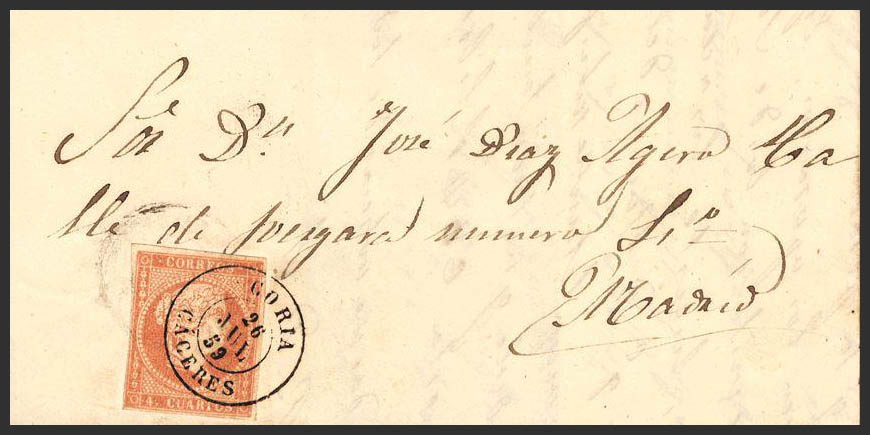 Sor Dn José Diaz Agero Ca
lle de Vergara numero
Madrid
CORREOS
4 CUARTOS
CORIA
26
JUL
59
CÁCERES